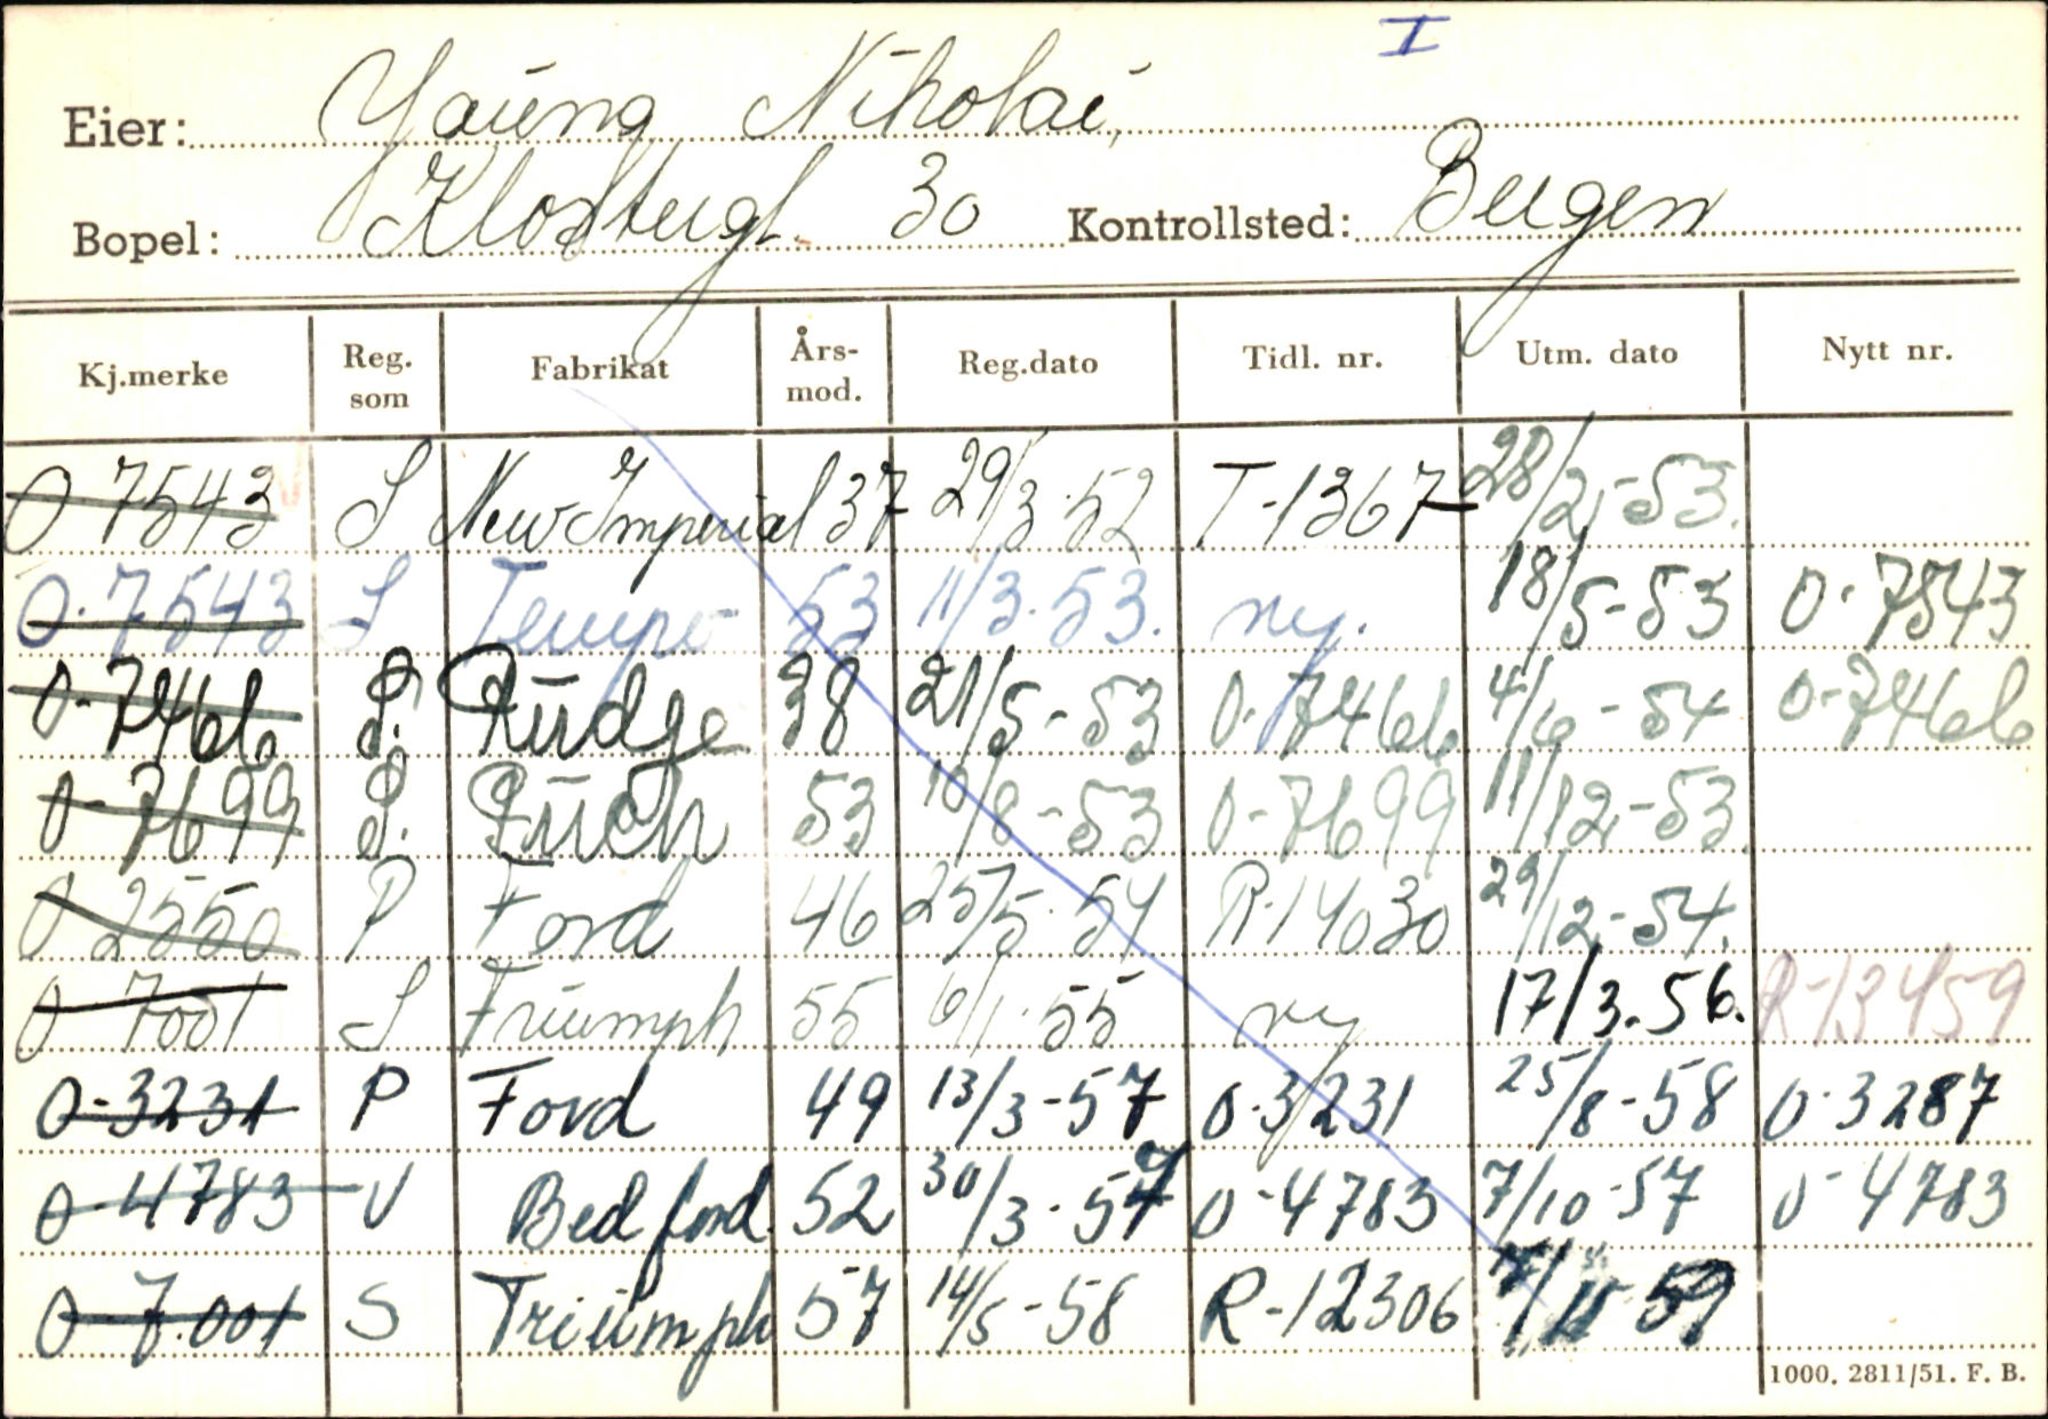 I
Eier: Young Nikolai,
Bopel: Klosterg. 30 Kontrollsted: Bergen
Kj.merke Reg. som Fabrikat Års-mod. Reg.dato Tidl. nr. Utm. dato Nytt nr.
O 7543 S New Imperial 37 29/3-52 T-1367 28/2-53.
O-7543 S Tempo 53 11/3-53. ny. 18/5-53 O-7543
O-7466 S. Rudge 38 21/5-53 O-7466 4/6-54 O-7466
O-7699 S. Puch 53 10/8-53 O-7699 11/12-53
O 2550 P Ford 46 25/5-54 R-14030 29/12-54.
O 7001 S Triumph 55 6/1-55 ny 17/3-56. R-13459
O-3231 P Ford 49 13/3-57 O-3231 25/8-58 O-3287
O 4783 V Bedford 52 30/3-57 O-4783 7/10-57 O-4783
O-7001 S Triumph 57 14/5-58 R-12306 59
1000. 2811/51. F. B.